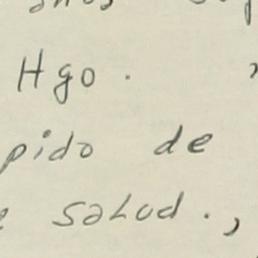 Hgo.
pido de
salud.,